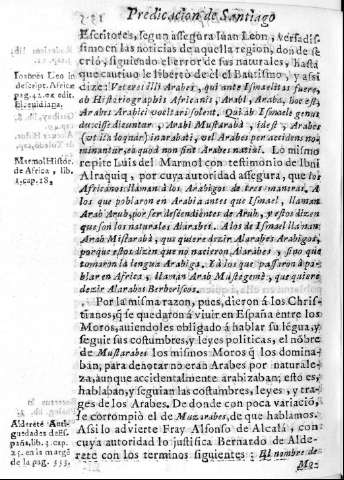 Predicacion de Santiago
Escritores, segun assegura Iuan Leon, versadis-
simo en las noticias de aquella region, donde se
criò, siguiendo el error de sus naturales, hasta
que cautivo le libertò de èl el Bautismo, y assi
dize: Veteres illi Arabes, qui ante Ismaelitas fuere,
ab Historiographis Africanis, Arabi, Araba, hoc est,
Arabes Arabici vocitari solent. Qui ab Ismaele genus
duxisse dicuntur, Arabi Mustarabà, idest, Arabes
inarabati, vel Arabes per accidens no-
minantur, ea quod non sint Arabes nativi. Lo mismo
repite Luis del Marmol con testimonio de Ibni
Alraquiq, por cuya autoridad assegura, que los
Africanos llaman à los Arabigos de tres maneras. A
los que poblaron en Arabia antes que Ismael, llaman
Arab Arub, por ser descendiētes de Arub, y estos dizen
que son los naturales Alarabes. A los de Ismael llaman
Arab Mistarabà, que quiere dezir Alarabes Arabigos,
porque estos dizen que no nacieron Alarabes, sino que
tomaron la lengua Arabiga. Y à los que passaron à po-
blar en Africa, llaman Arab Mustegemè, que quiere
dezir Alarabes Berberiscos.
Por la misma razon, pues, dieron à los Chris-
tianos, q̄ se quedaron à vivir en España entre los
Moros, aviendoles obligado à hablar su lēgua, y
seguir sus costumbres, y leyes politicas, el nōbre
de Mustarabes los mismos Moros q̄ los domina-
ban, para denotar no eran Arabes por naturale-
za, aunque accidentalmente arabizaban; esto es,
hablaban, y seguian las costumbres, leyes, y tra-
ges de los Arabes. De donde con poca variaciō,
se corrompiò el de Muzarabes, de que hablamos.
Assi lo advierte Fray Alfonso de Alcalà, con
cuya autoridad lo justifica Bernardo de Alde-
rete con los terminos siguientes: El nombre de
Mo-
Ioannes Leo in
descript. Africæ
pag. 42. ex edit.
Marmol Histor.
de Africa, lib.
1. cap. 28.
Alderete Anti-
guedades de Es-
paña, lib. 3. cap.
25. en la margē
de la pag. 333.